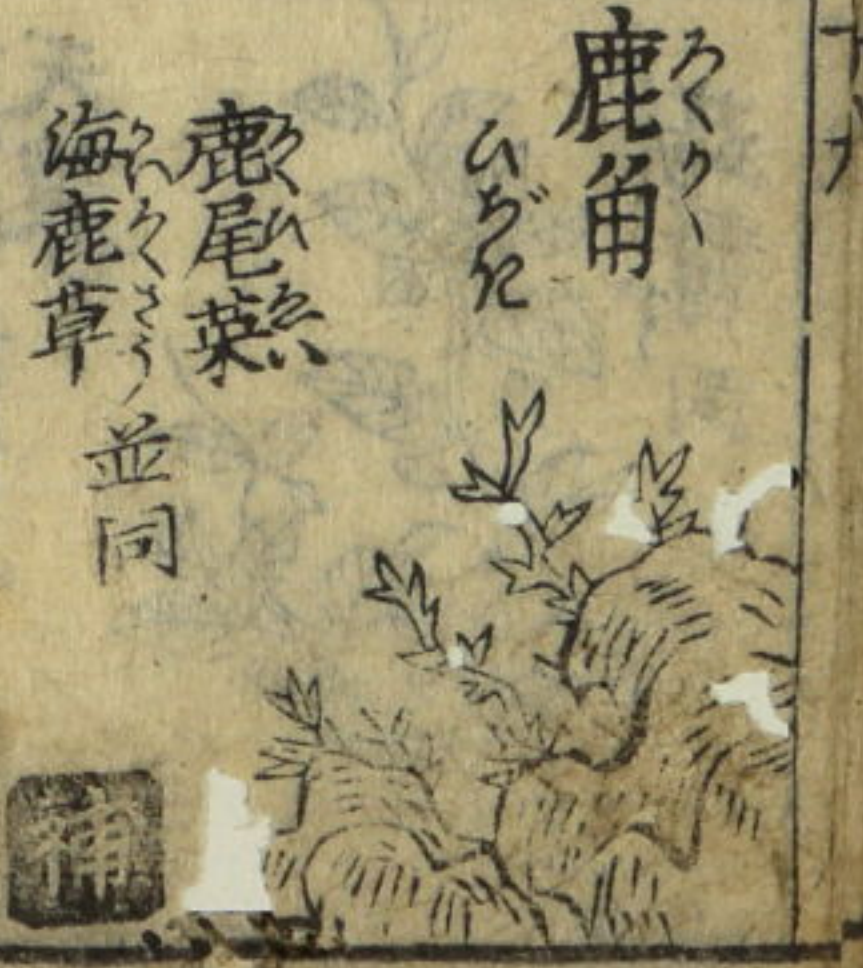 鹿角
ろくかく
ひぢき
鹿尾菜
ろくひさい
海鹿草
かいろくさう
並同
補